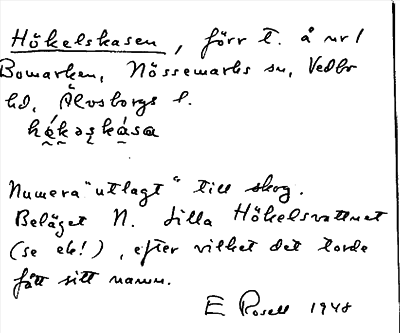 Hökelskasen, förr t. å nr 1
Bomarken, Nössemarks sn, Vedbo
hd, Älvsborgs l.
Numera "utlagt" till skog.
Beläget N. Lilla Hökelsvattnet
(se ek!), efter vilket det torde
fått sitt namn.
E Rosell 1948